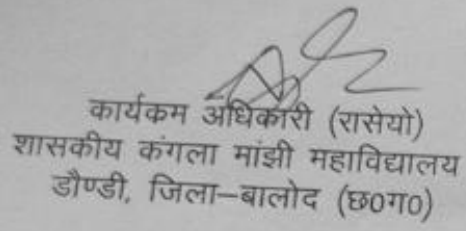 कार्यकम अधिकारी (रासेयो)
शासकीय कंगला मांझी महाविद्यालय
डौण्डी, जिला–बालोद (छ0ग0)